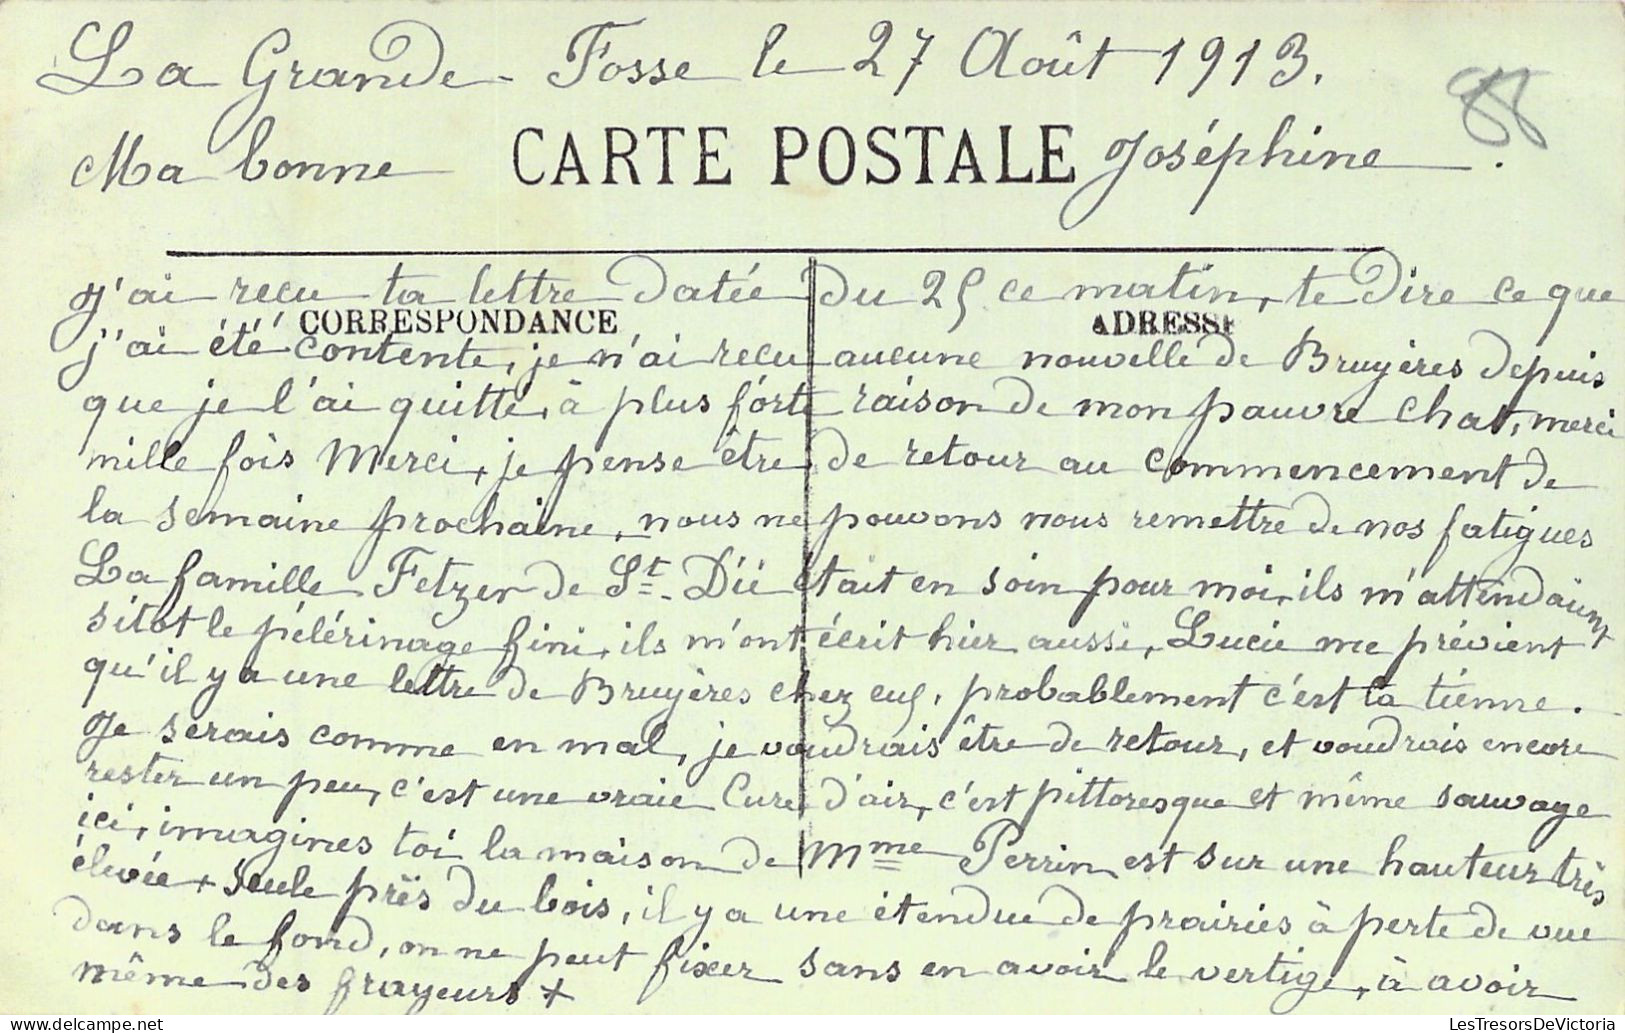 La Grande-Fosse le 27 Août 1913.
Ma bonne CARTE POSTALE Joséphine.
J'ai reçu ta lettre datée du 25 ce matin, te dire ce que
CORRESPONDANCE ADRESSE
j'ai été contente, je n'ai reçu aucune nouvelle de Bruyères depuis
que je l'ai quitté, à plus forte raison de mon pauvre chat, merci
mille fois Merci, je pense être de retour au commencement de
la semaine prochaine, nous ne pouvons nous remettre de nos fatigues
La famille Fetzer de St. Dié était en soin pour moi, ils m'attendaient
sitot le pélérinage fini, ils m'ont écrit hier aussi, Lucie me prévient
qu'il y a une lettre de Bruyères chez eux, probablement c'est la tienne.
Je serais comme en mal, je voudrais être de retour, et voudrais encore
rester un peu, c'est une vraie Cure d'air, c'est pittoresque et même sauvage
ici, imagines toi la maison de Mme Perrin est sur une hauteur très
élevée + seule près du bois, il y a une étendue de prairies à perte de vue
dans le fond, on ne peut fixer sans en avoir le vertige, à avoir
même des frayeurs +
LesTresorsDeVictoria.com